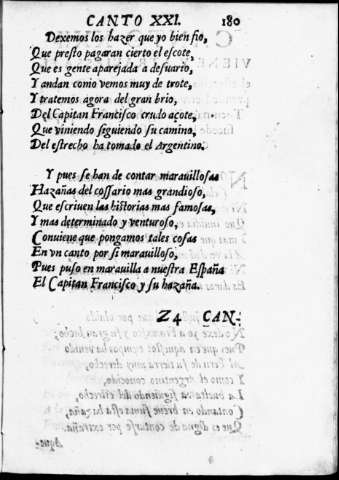 CANTO XXI. 180
Dexemos los hazer que yo bien fio,
Que presto pagaran cierto el escote,
Que es gente aparejada a desuario,
Y andan como vemos muy de trote,
Y tratemos agora del gran brio,
Del Capitan Francisco crudo açote,
Que viniendo siguiendo su camino,
Del estrecho ha tomado el Argentino.
Y pues se han de contar marauillosas
Hazañas del cossario mas grandioso,
Que escriuen las historias mas famosas,
Y mas determinado y venturoso,
Conuiene que pongamos tales cosas
En vn canto por si marauilloso,
Pues puso en marauilla a nuestra España
El Capitan Francisco y su hazaña.
Z4 CAN-